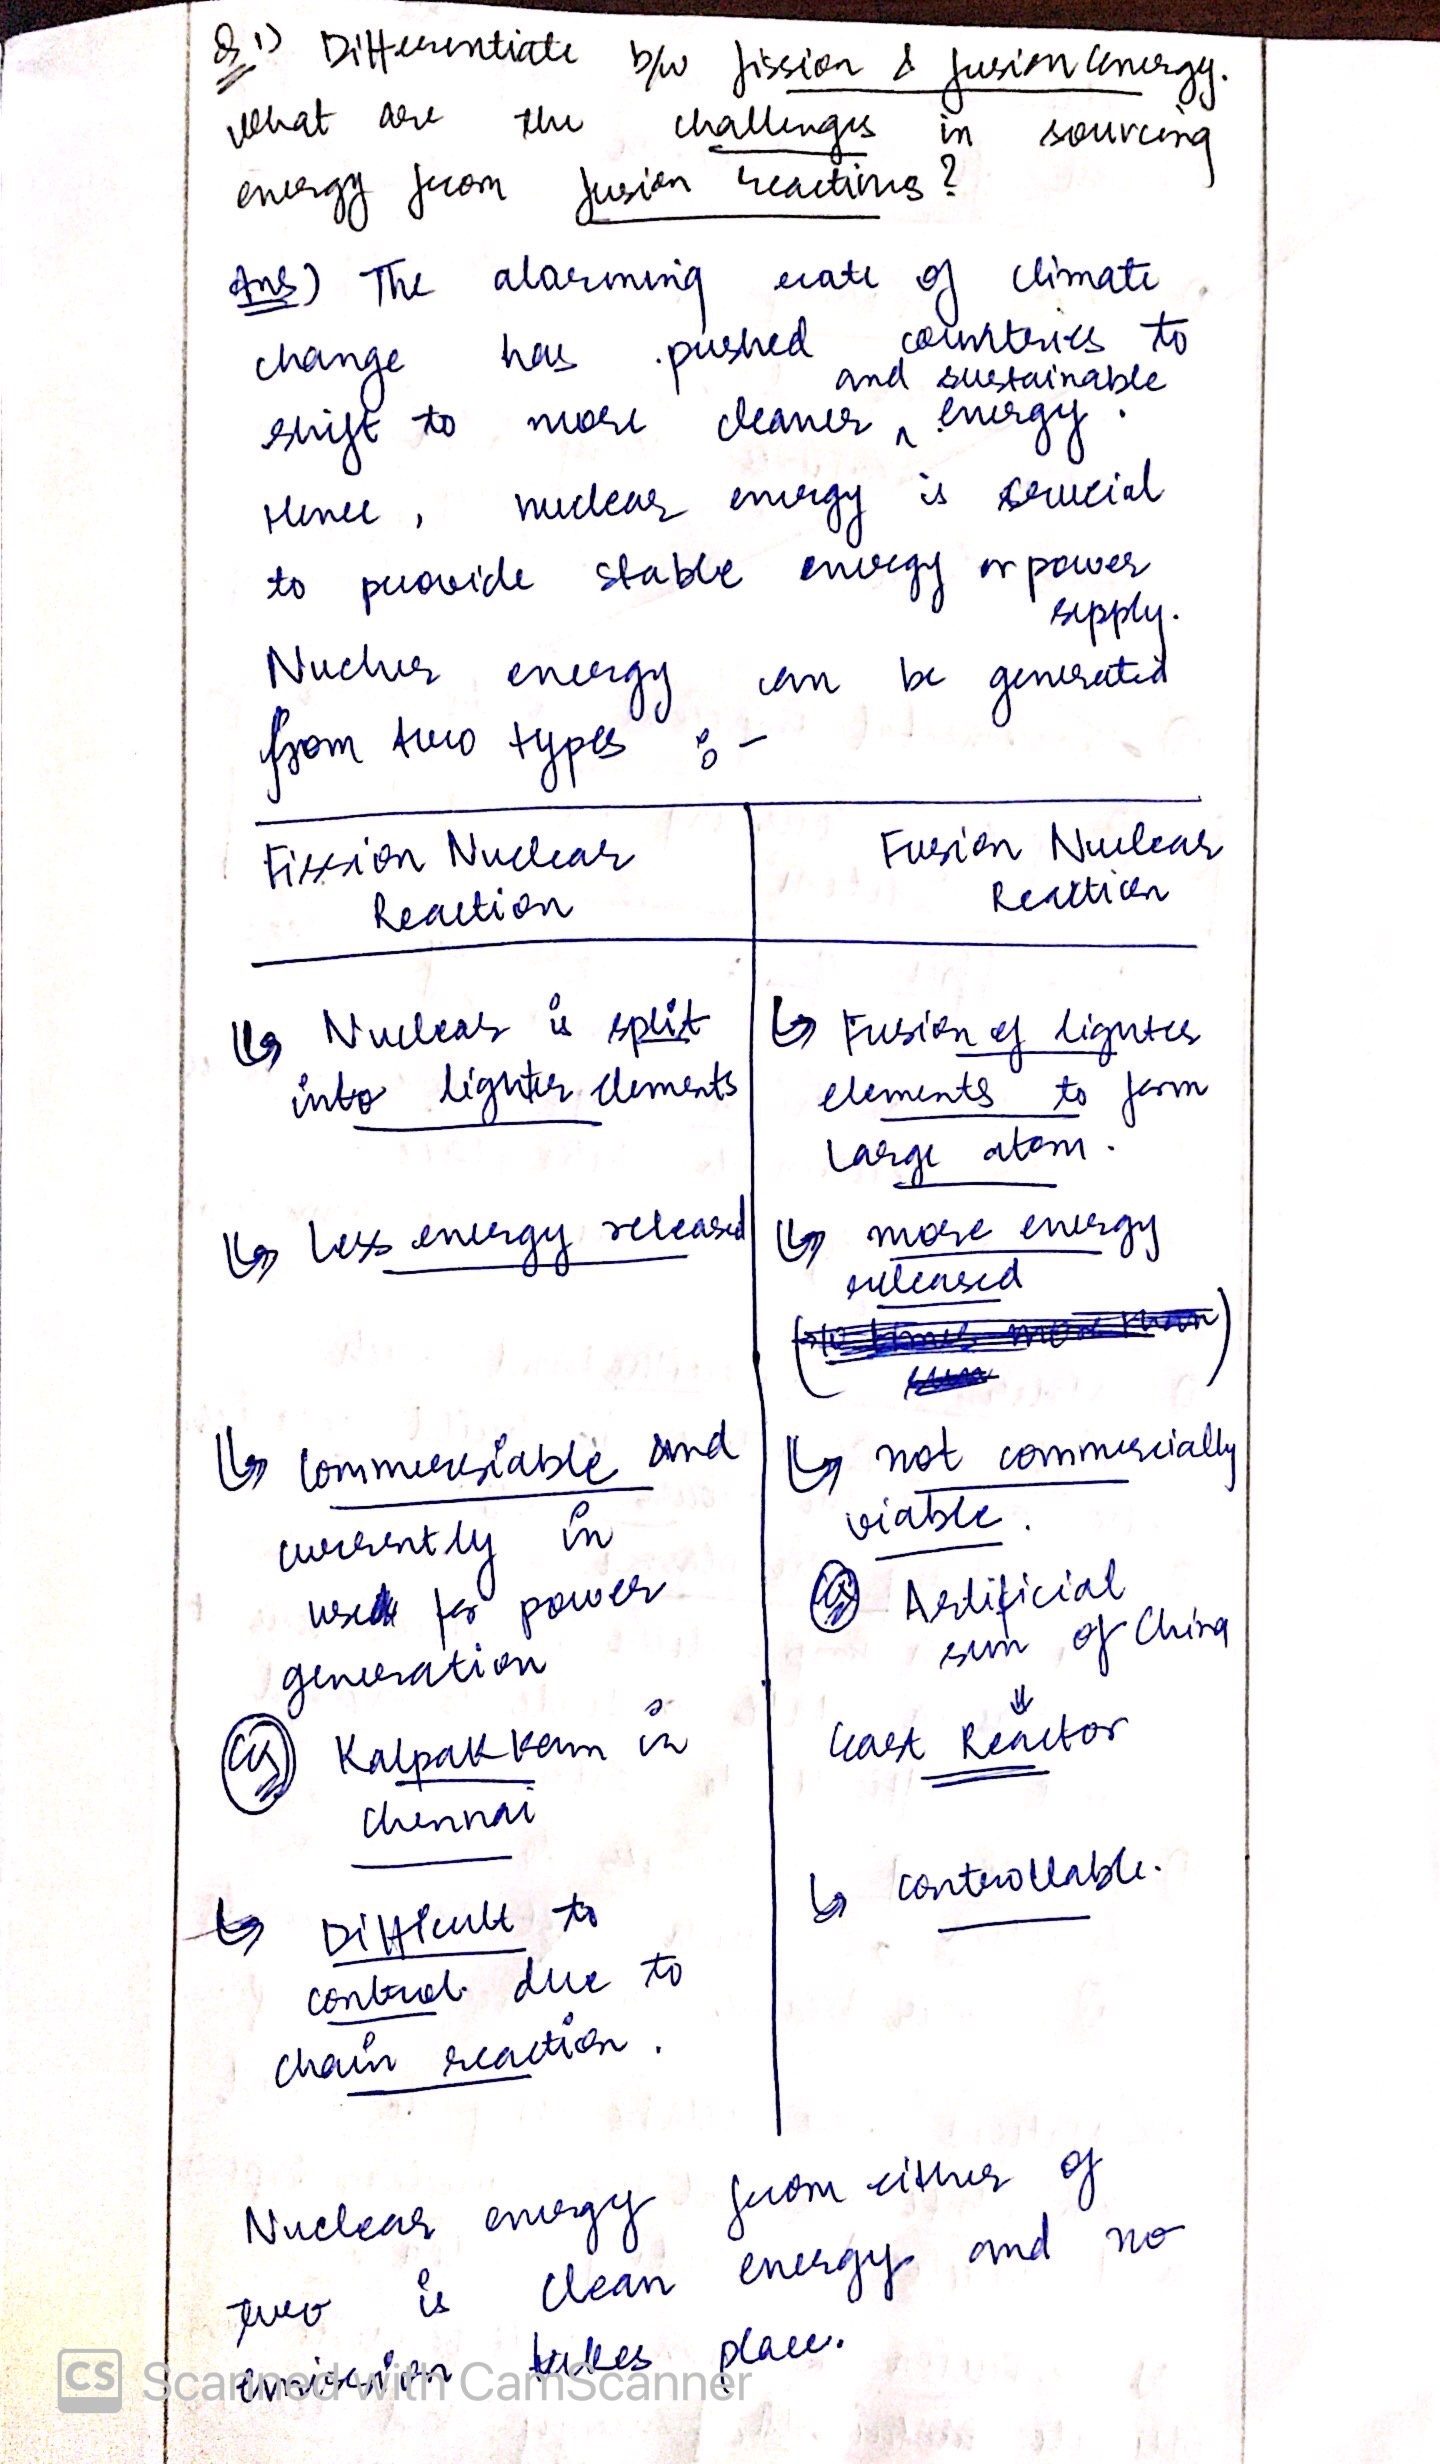 Q.1) Differentiate b/w fission & fusion energy.
What are the challenges in sourcing
energy from fusion reactions?
Ans) The alarming rate of climate
change has pushed countries to
and sustainable
shift to more cleaner ^ energy.
Hence, nuclear energy is crucial
to provide stable energy or power
supply.
Nuclear energy can be generated
from two types :-
Fission Nuclear
Reaction
↳ Nuclear is split
into lighter elements
↳ Less energy released
↳ Commersiable and
currently in
used for power
generation
eg Kalpakkam in
Chennai
↳ Difficult to
control due to
chain reaction.
Fusion Nuclear
Reaction
↳ Fusion of lighter
elements to form
large atom.
↳ more energy
released
(10 times more than
sun)
↳ not commercially
viable.
eg Artificial
sun of China
⇓
East Reactor
↳ controllable.
Nuclear energy from either of
two is clean energy and no
emission takes place.
CS Scanned with CamScanner